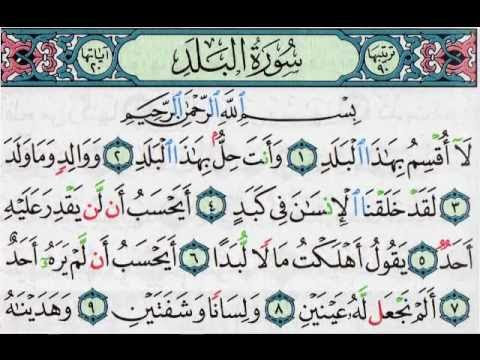 ترتيبها ٩٠ سُورَةُ الْبَلَدِ آياتها ٢٠
بِسْمِ اللَّهِ الرَّحْمَٰنِ الرَّحِيمِ
لَآ أُقْسِمُ بِهَٰذَا الْبَلَدِ ١ وَأَنتَ حِلٌّۢ بِهَٰذَا الْبَلَدِ ٢ وَوَالِدٍ وَمَا وَلَدَ
٣ لَقَدْ خَلَقْنَا الْإِنسَٰنَ فِي كَبَدٍ ٤ أَيَحْسَبُ أَن لَّن يَقْدِرَ عَلَيْهِ
أَحَدٌ ٥ يَقُولُ أَهْلَكْتُ مَالًا لُّبَدًا ٦ أَيَحْسَبُ أَن لَّمْ يَرَهُۥٓ أَحَدٌ
٧ أَلَمْ نَجْعَل لَّهُۥ عَيْنَيْنِ ٨ وَلِسَانًا وَشَفَتَيْنِ ٩ وَهَدَيْنَٰهُ